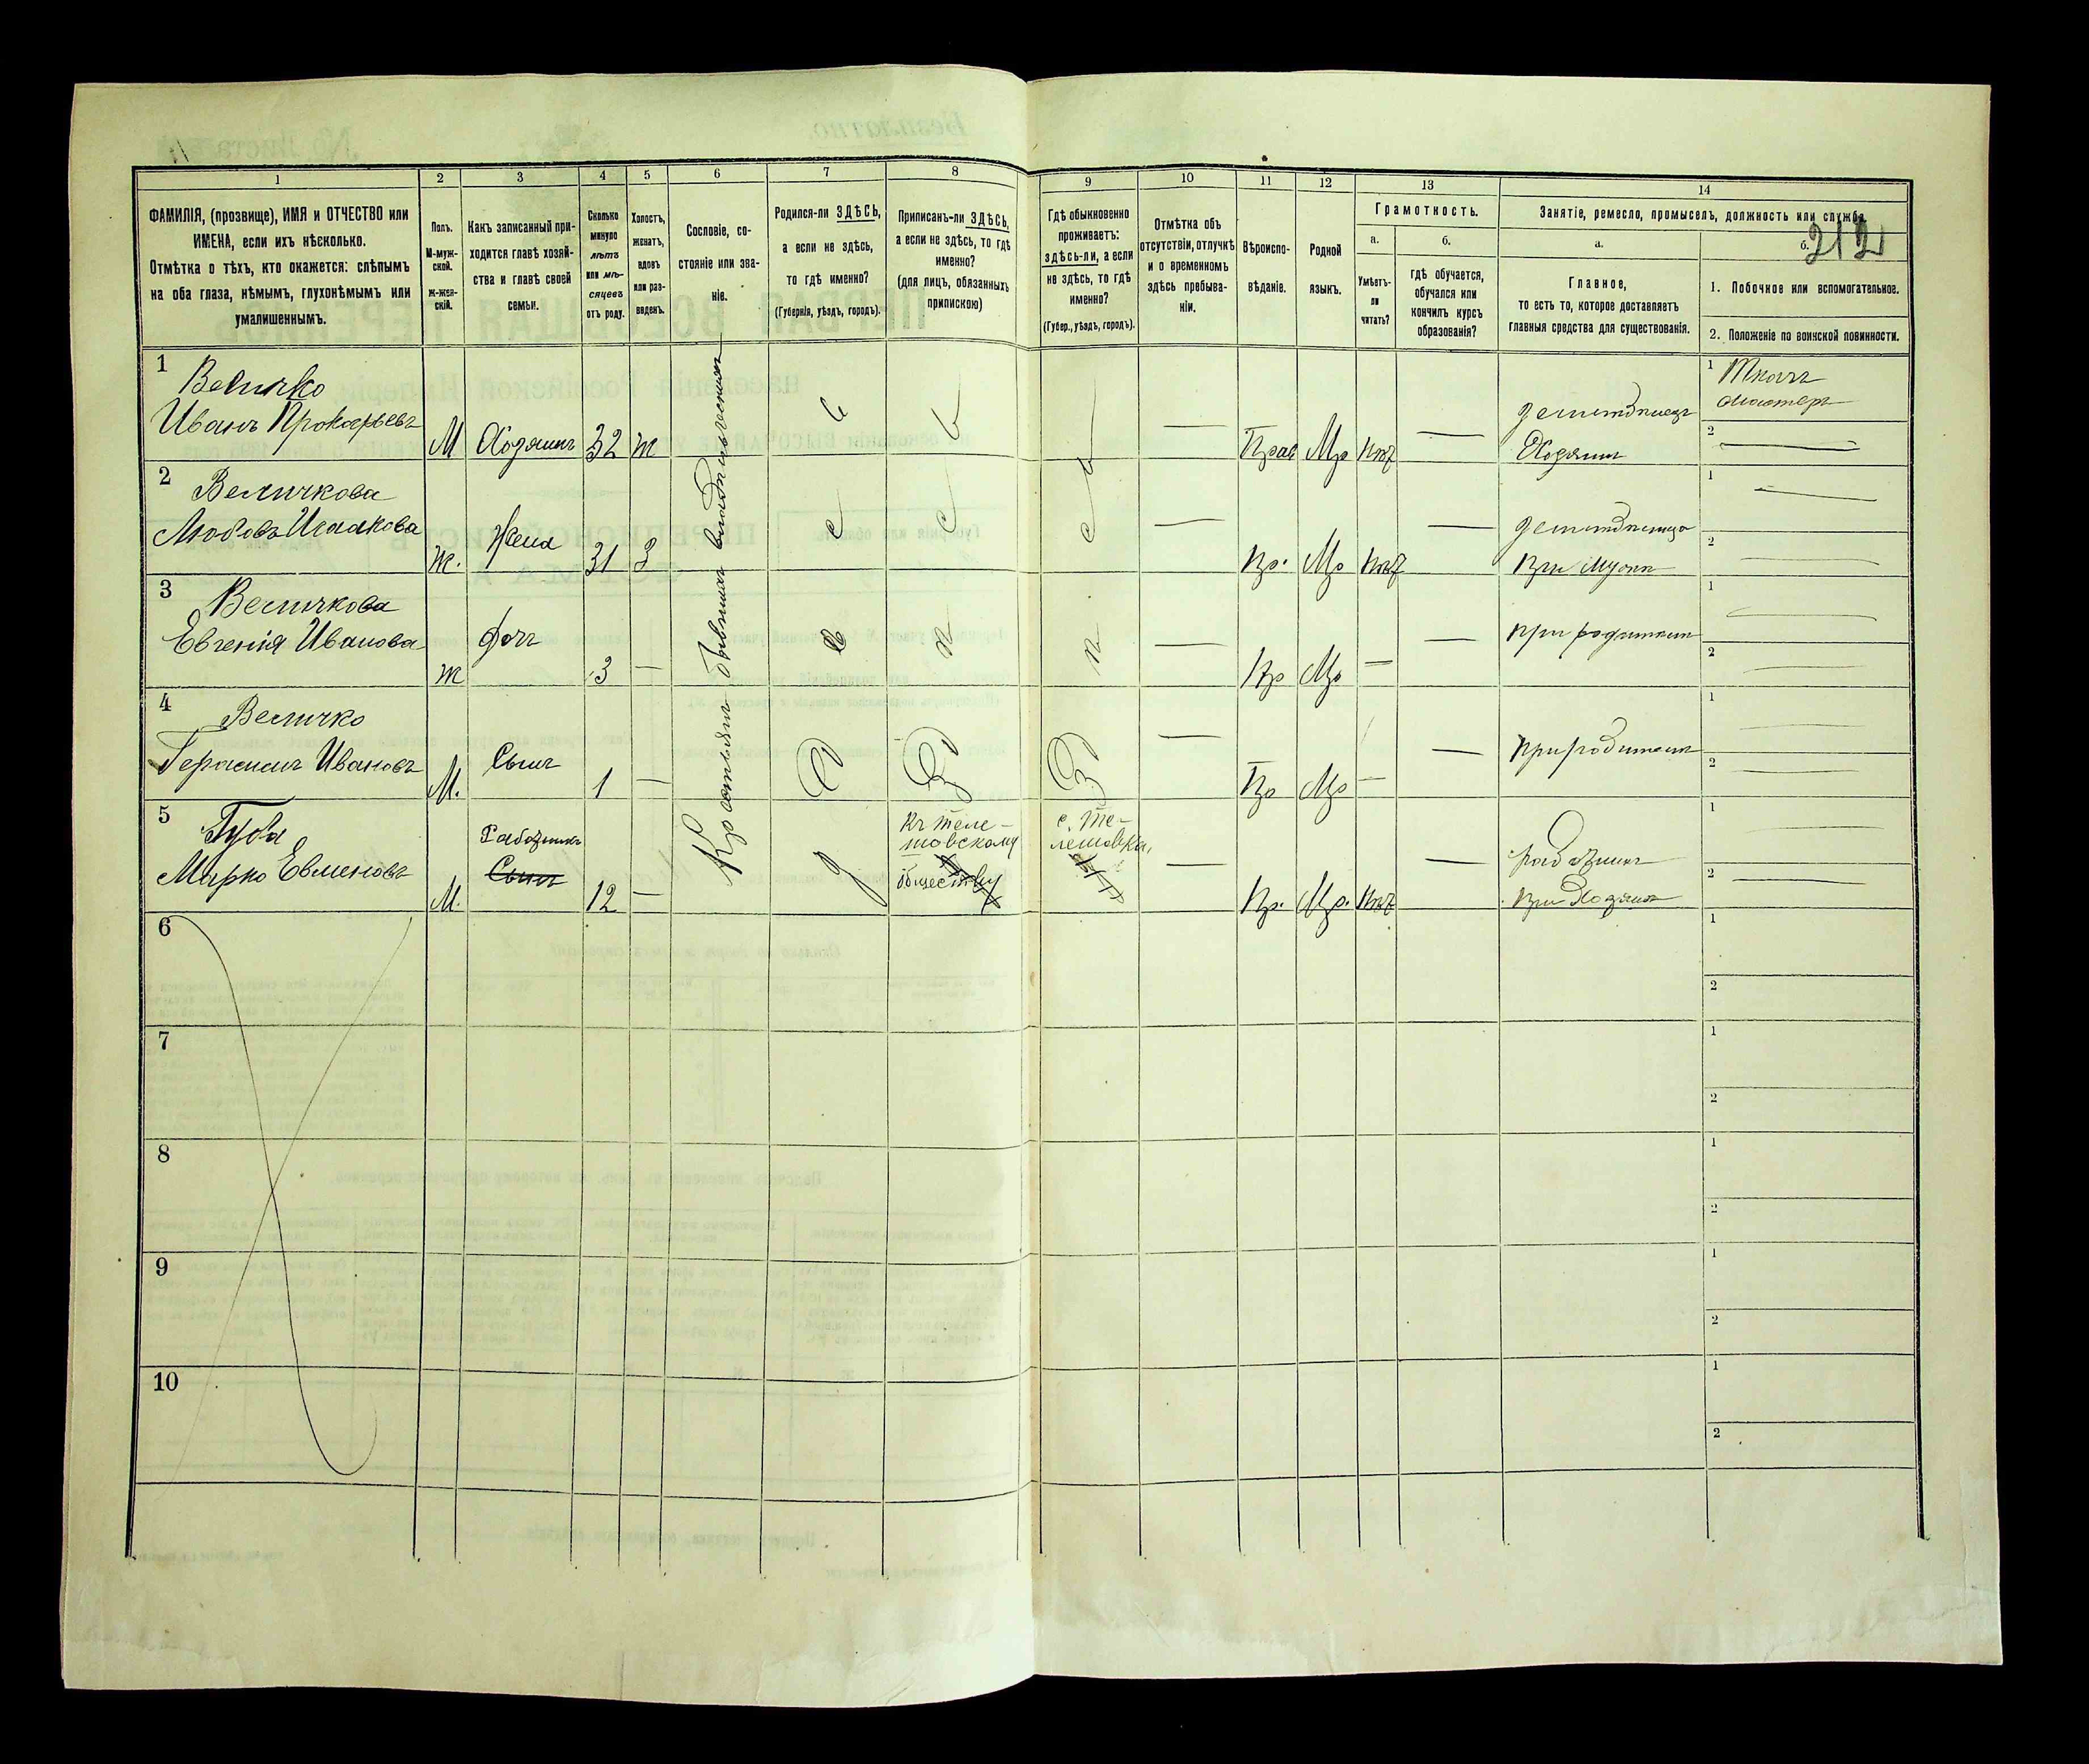 212
1 2 3 4 5 6 7 8 9 10 11 12 13 14
ФАМИЛІЯ, (прозвище), ИМЯ и ОТЧЕСТВО или
ИМЕНА, если ихъ нѣсколько.
Отмѣтка о тѣхъ, кто окажется: слѣпымъ
на оба глаза, нѣмымъ, глухонѣмымъ или
умалишеннымъ.
Полъ.
М-муж-
ской.
ж-жен-
скій.
Какъ записанный при-
ходится главѣ хозяй-
ства и главѣ своей
семьи.
Сколько
минуло
лѣтъ
или мѣ-
сяцевъ
отъ роду.
Холостъ,
женатъ,
вдовъ
или раз-
веденъ.
Сословіе, со-
стояніе или зва-
ніе.
Родился-ли ЗДѢСЬ,
а если не здѣсь,
то гдѣ именно?
(Губернія, уѣздъ, городъ).
Приписанъ-ли ЗДѢСЬ,
а если не здѣсь, то гдѣ
именно?
(для лицъ, обязанныхъ
припискою)
Гдѣ обыкновенно
проживаетъ:
здѣсь-ли, а если
не здѣсь, то гдѣ
именно?
(Губер., уѣздъ, городъ).
Отмѣтка объ
отсутствіи, отлучкѣ
и о временномъ
здѣсь пребыва-
ніи.
Вѣроиспо-
вѣданіе.
Родной
языкъ.
Грамотность.
а.
Умѣетъ-
ли
читать?
б.
гдѣ обучается,
обучался или
кончилъ курсъ
образованія?
Занятіе, ремесло, промыселъ, должность или служба.
а.
Главное,
то есть то, которое доставляетъ
главныя средства для существованія.
б.
1. Побочное или вспомогательное.
2. Положеніе по воинской повинности.
Крестьянинъ бывшихъ владѣльческихъ
1
Величко
Иванъ Прокофьевъ
М Хозяинъ 32 ж
Прав Мр нѣт
земледѣлецъ
Хозяинъ
1 Ткачь
мастеръ
2
2
Величкова
Любовь Исаакова
ж. Жена 31 З
Пр. Мр нѣт
земледѣлица
при мужѣ
1
2
3
Величкова
Евгенія Иванова
ж дочь 3
Пр Мр
при родителѣ
1
2
4
Величко
Герасимъ Ивановъ
М. Сынъ 1
Пр Мр
при родителѣ
1
2
5
Губа
Марко Евменовъ
М. Работникъ
Сынъ
12
Къ Теле-
шовскому
обществу
с. Те-
лешовка,
Пр. Мр. нѣт
работникъ
при Хозяинѣ
1
2
6
1
2
7
1
2
8
1
2
9
1
2
10
1
2